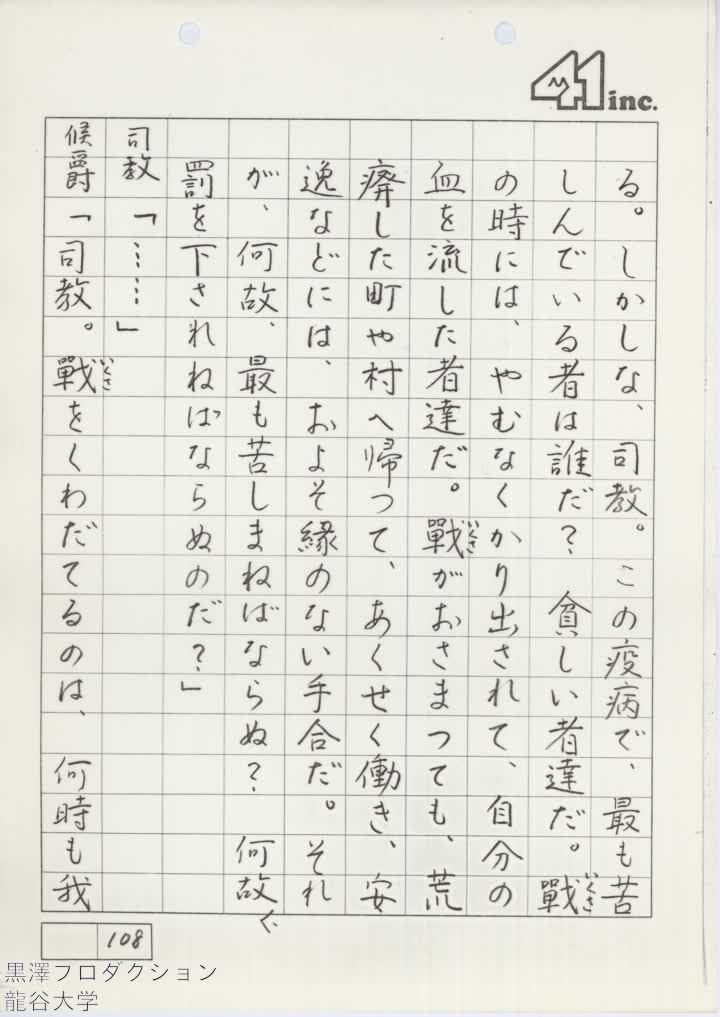 41 inc.
る。しかしな、司教。この疫病で、最も苦
しんでいる者は誰だ？　貧しい者達だ。戰いくさ
の時には、やむなくかり出されて、自分の
血を流した者達だ。戰いくさがおさまっても、荒
癈した町や村へ帰って、あくせく働き、安
逸などには、およそ縁のない手合だ。それ
が、何故、最も苦しまねばならぬ？　何故、
罰を下されねばならぬのだ？」
司教「……」
候爵「司教。戰いくさをくわだてるのは、何時も我
108
黒澤プロダクション
龍谷大学